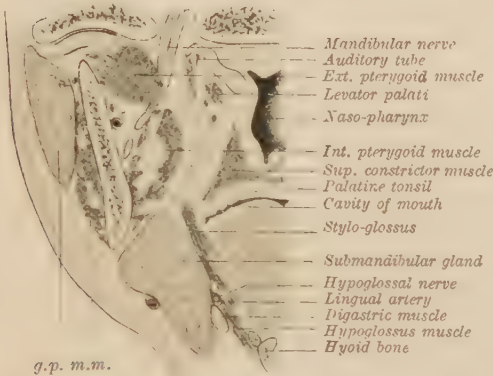 Mandibular nerve
Auditory tube
Ext. pterygoid muscle
Levator palati
Naso-pharynx
Int. pterygoid muscle
Sup. constrictor muscle
Palatine tonsil
Cavity of mouth
Stylo-glossus
Submandibular gland
Hypoglossal nerve
Lingual artery
Digastric muscle
Hypoglossus muscle
Hyoid bone
g.p. m.m.